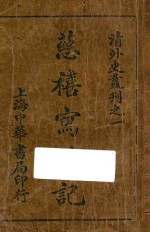 清外史叢刊之一
慈禧寫記
上海中華書局印行